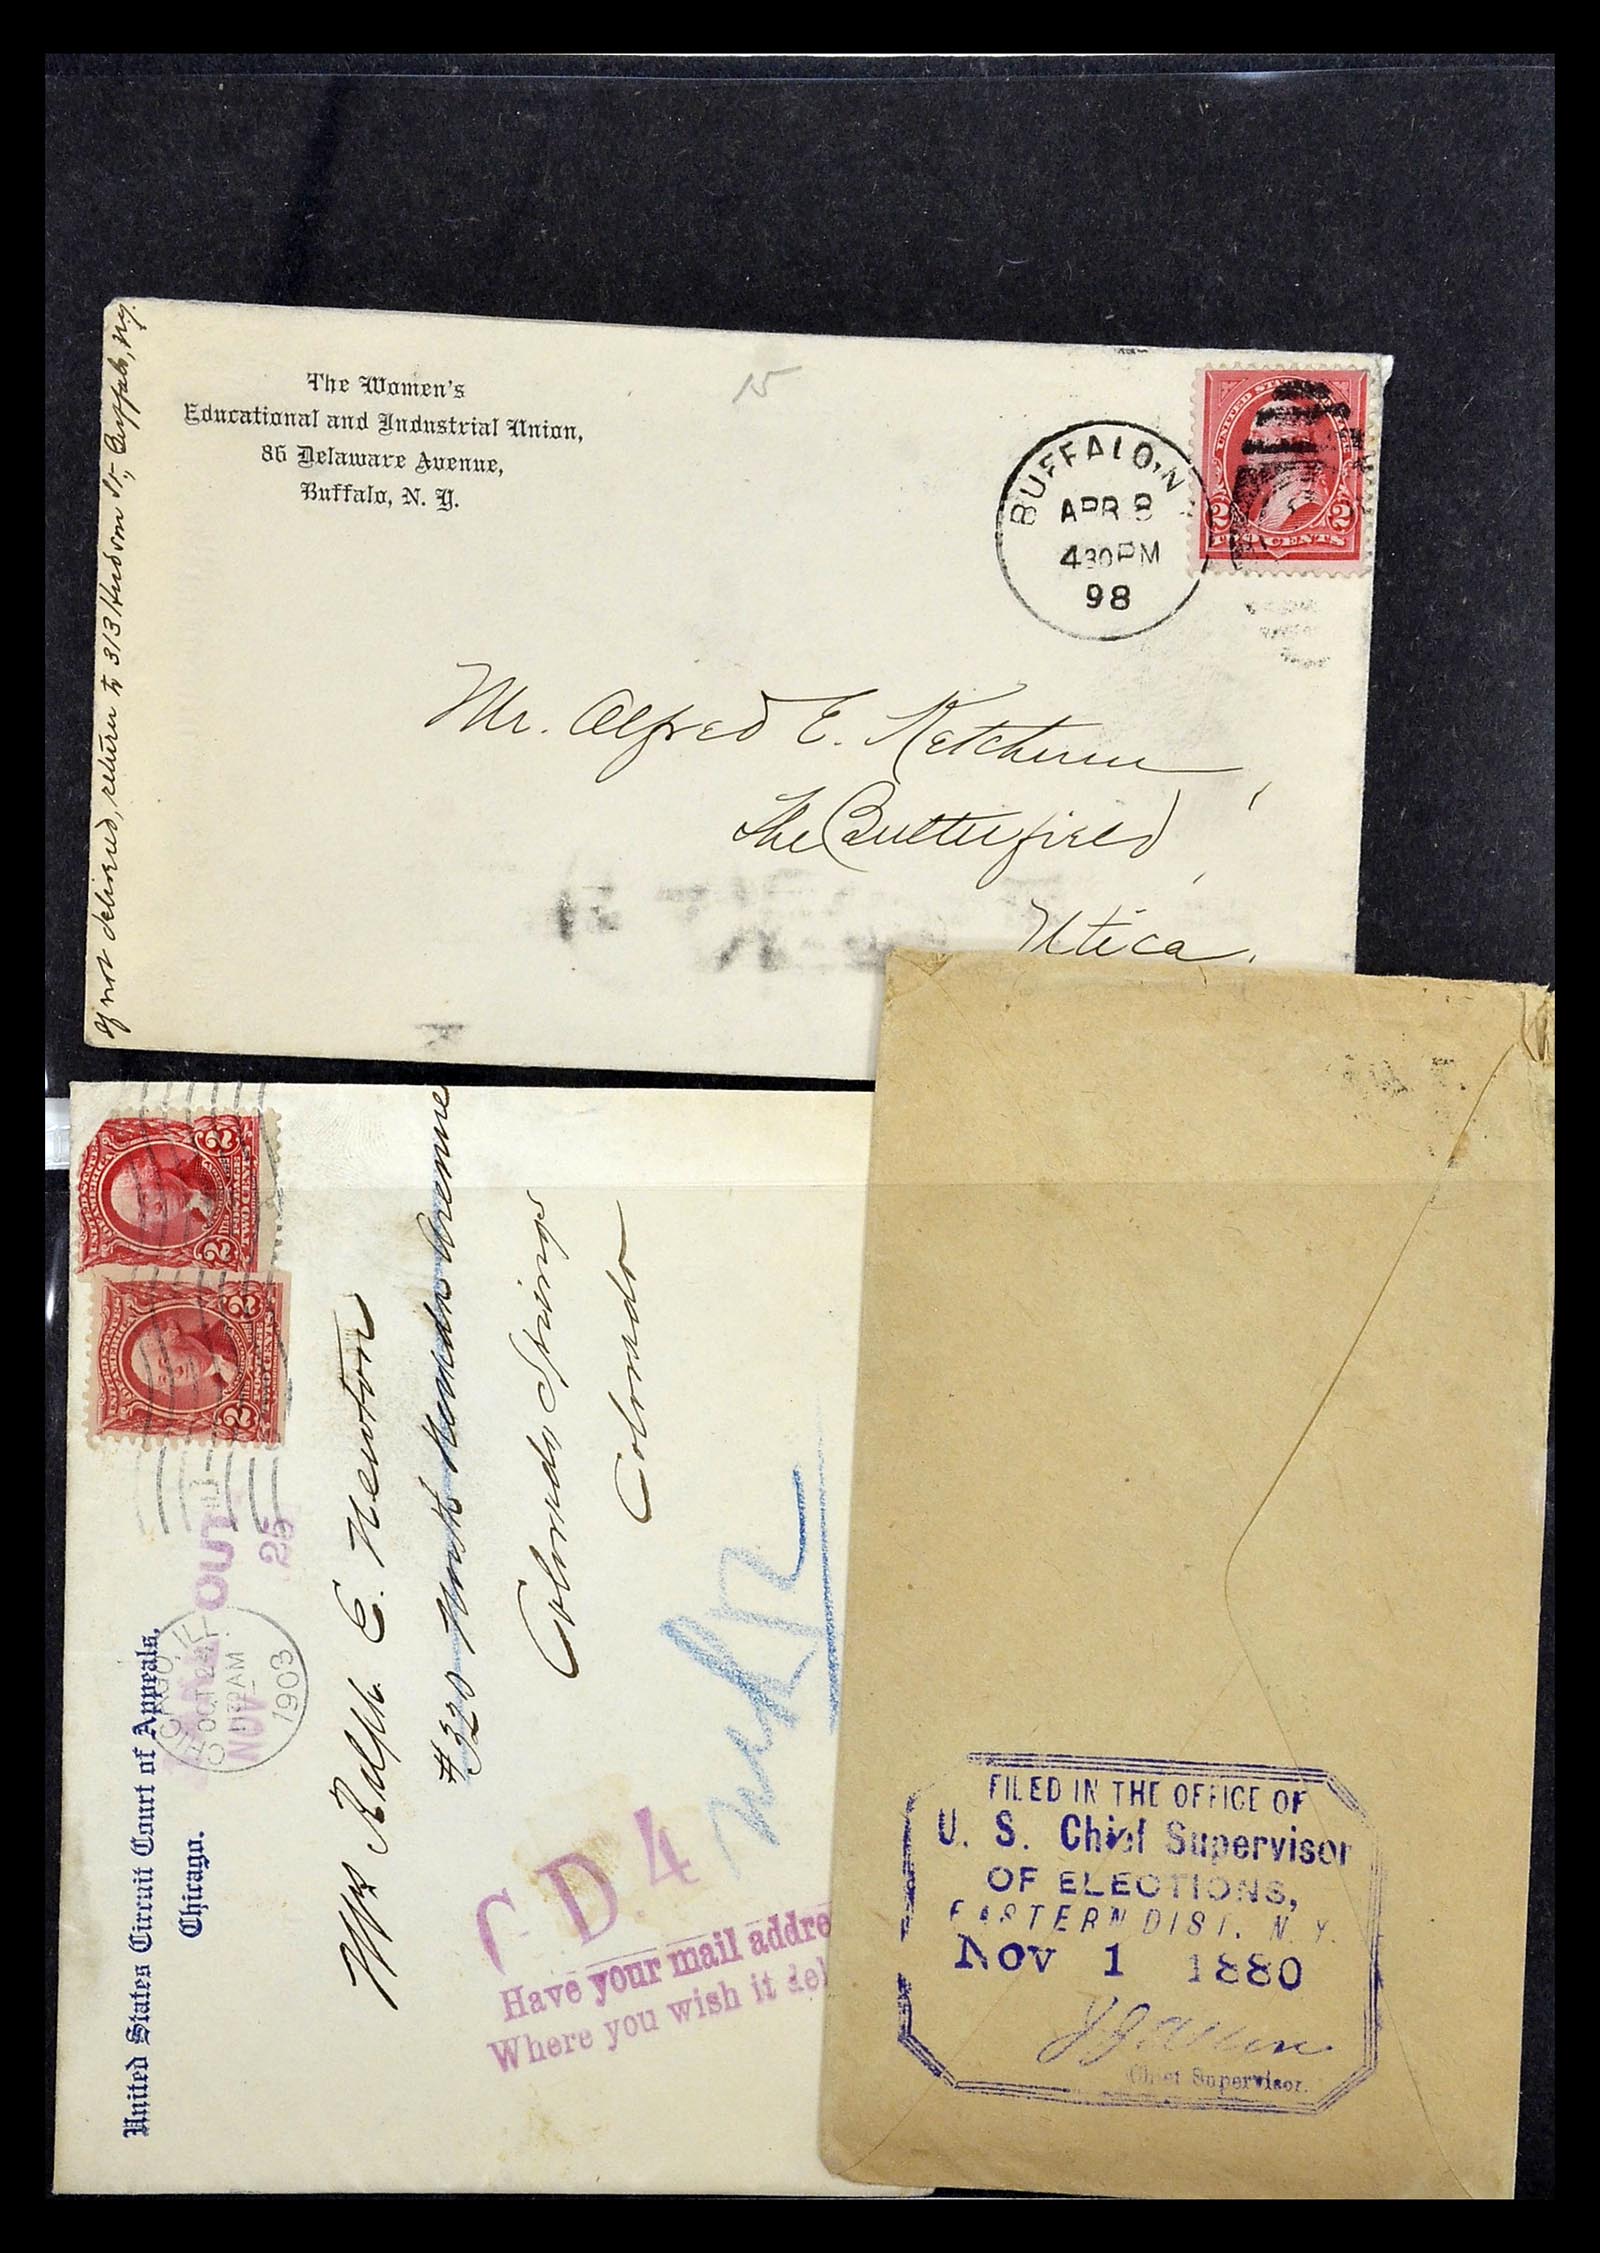 The Women's
Educational and Industrial Union,
86 Delaware Avenue,
Buffalo, N. Y.
15
If not delivered, return to 313 Hudson St., Buffalo, N.Y.
BUFFALO, N
APR 8
430PM
98
UNITED STATES
2 2
TWO CENTS
Mr. Alfred E. Ketchum,
The Butterfield,
Utica.
United States Circuit Court of Appeals,
Chicago.
CHICAGO, ILL.
OCT 24
AM
1903
OUT
NOV 25
2 2
TWO CENTS
2 2
TWO CENTS
Mrs Ralph E. Newton
#320 North Nevada Avenue
Colorado Springs
Colorado
C D 4
Have your mail addre
Where you wish it del
FILED IN THE OFFICE OF
U. S. Chief Supervisor
OF ELECTIONS,
EASTERN DIST. N. Y.
Nov 1 1880
Chief Supervisor.